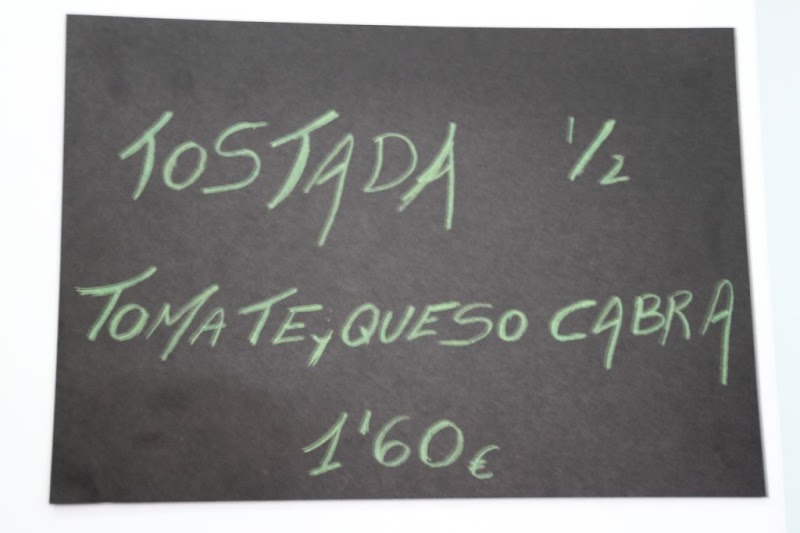 TOSTADA 1/2
TOMATE y QUESO CABRA
1'60€